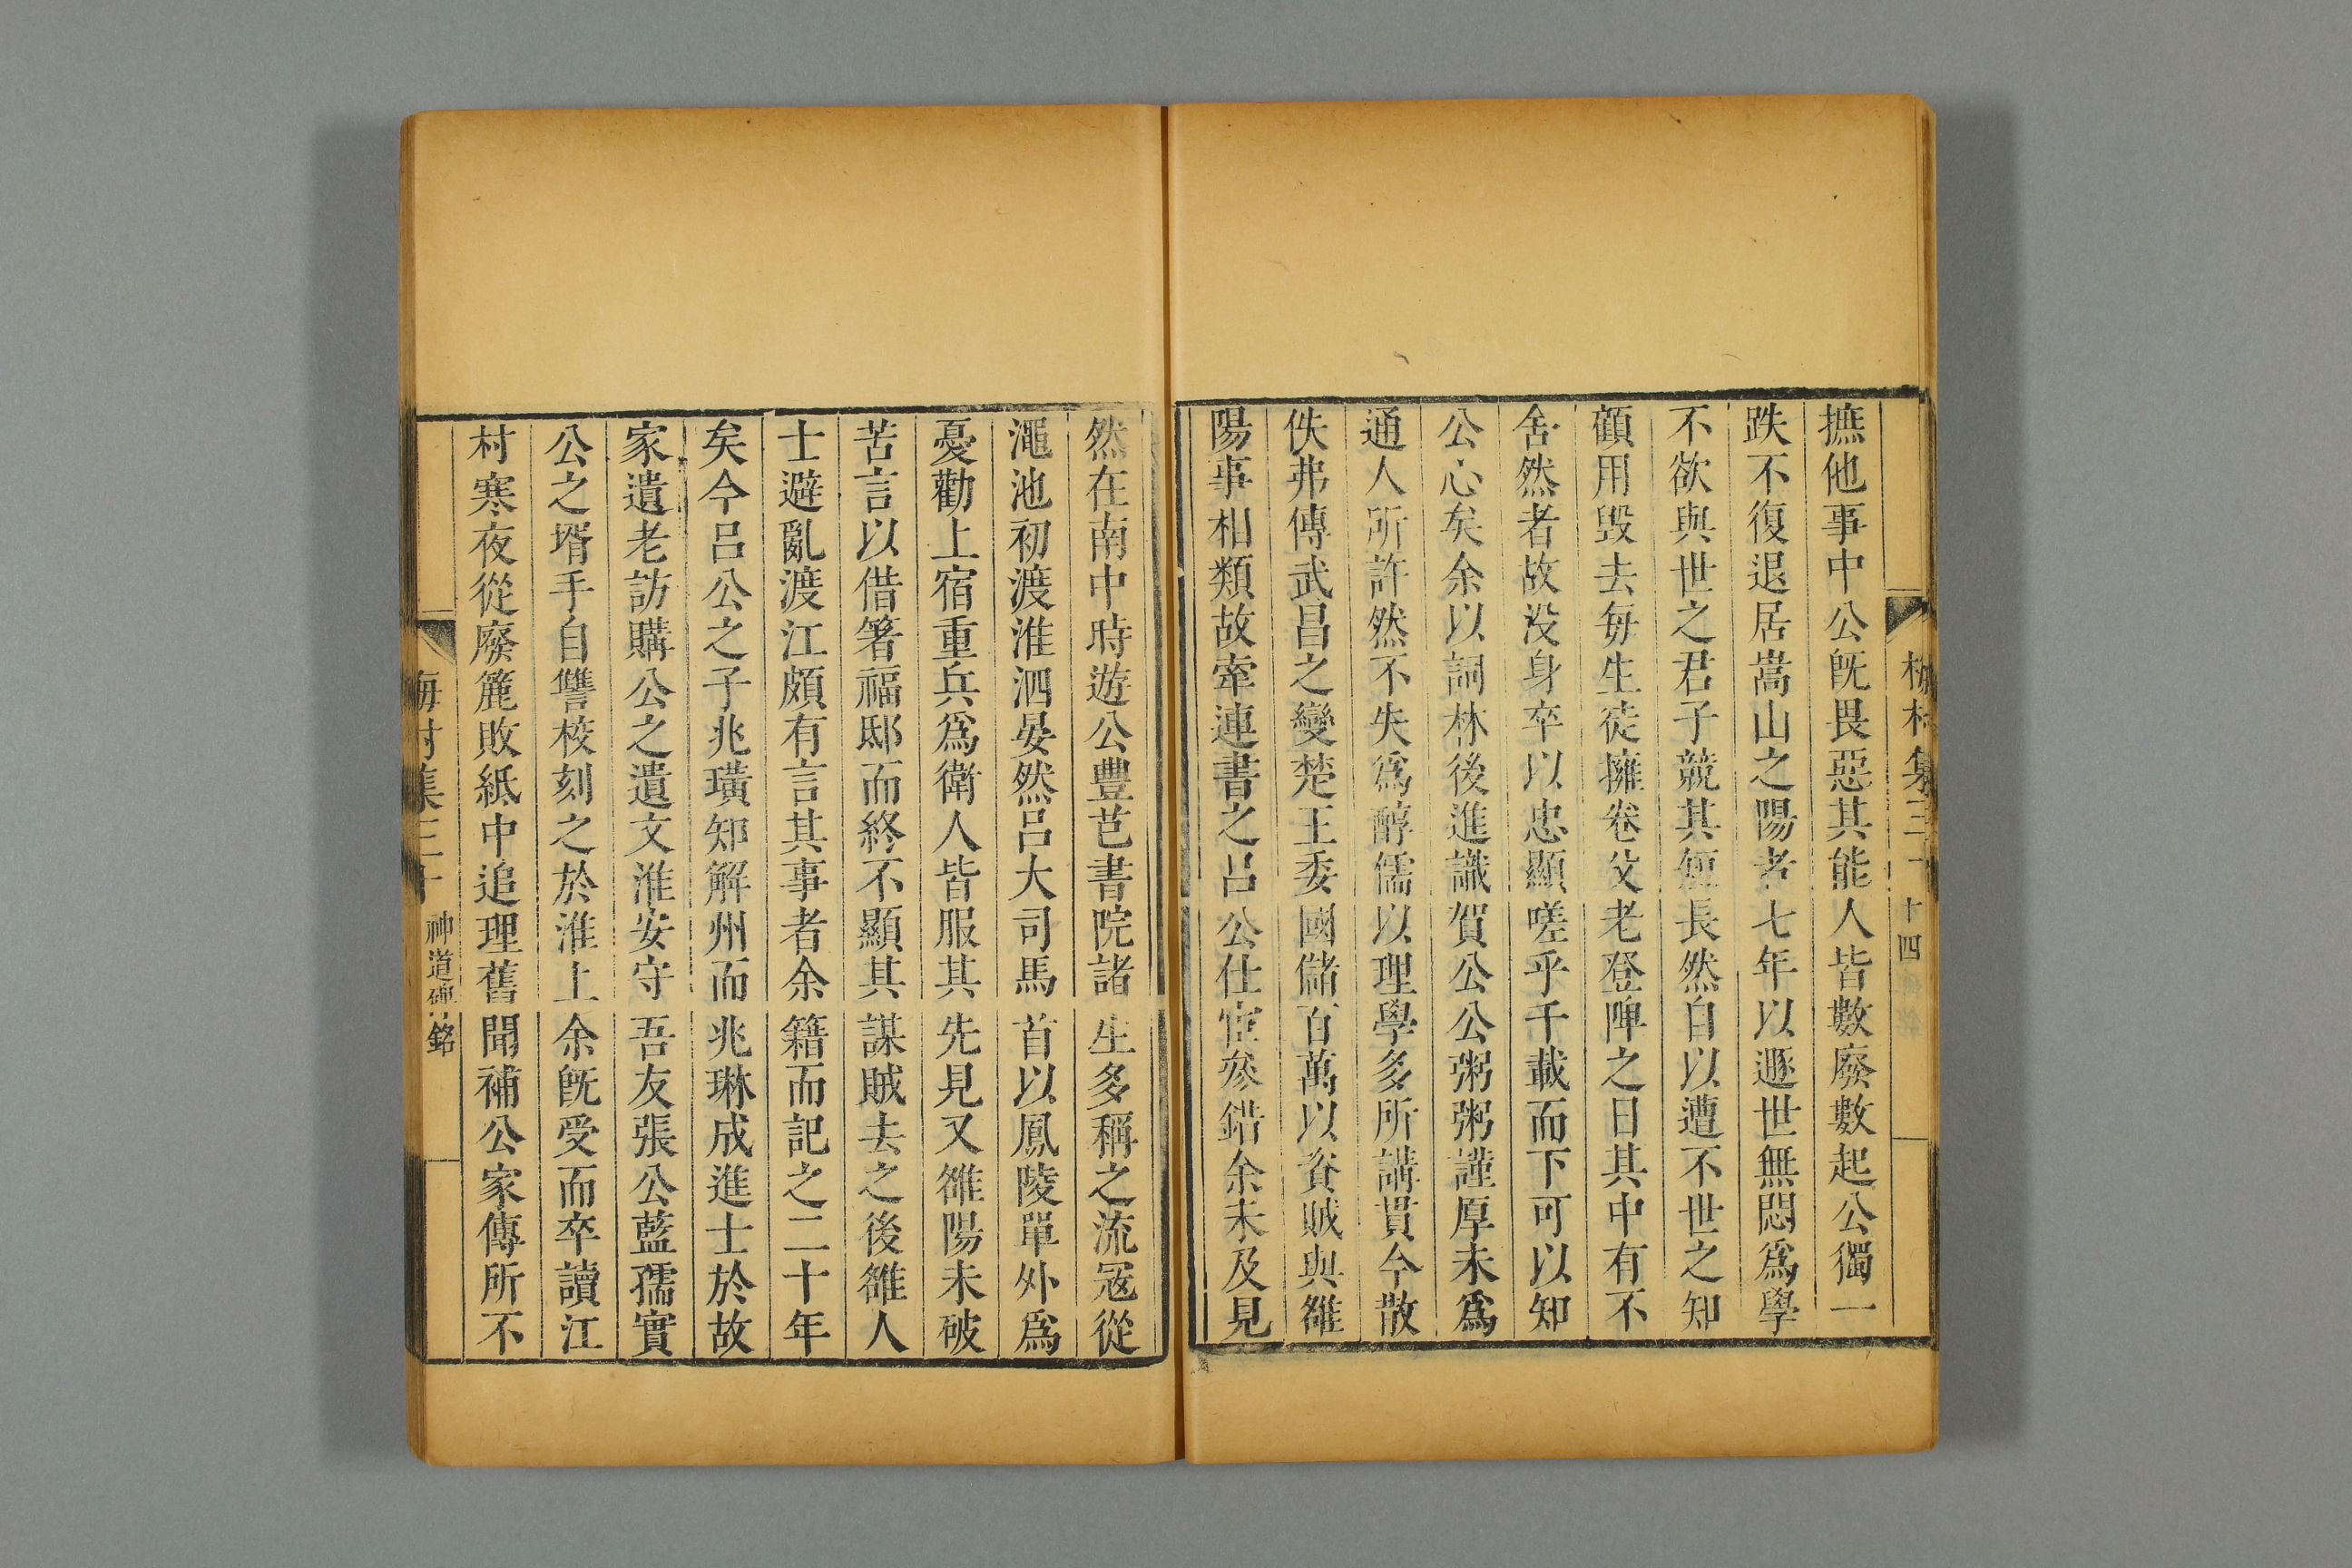 梅村集三十 十四
摭他事中公旣畏惡其能人皆數廢數起公獨一
跌不復退居嵩山之陽者七年以遯世無悶爲學
不欲與世之君子競其短長然自以遭不世之知
顧用毁去每生徒擁卷父老登陴之日其中有不
舍然者故没身卒以忠顯嗟乎千載而下可以知
公心矣余以詞林後進識賀公公粥粥謹厚未爲
通人所許然不失爲醇儒以理學多所講貫今散
佚弗傳武昌之變楚王委國儲百萬以資賊與雒
陽事相類故牽連書之呂公仕宦叅錯余未及見
然在南中時遊公豐芑書院諸生多稱之流冦從
澠池初渡淮泗晏然呂大司馬首以鳳陵單外爲
憂勸上宿重兵爲衛人皆服其先見又雒陽未破
苦言以借箸福邸而終不顯其謀賊去之後雒人
士避亂渡江頗有言其事者余籍而記之二十年
矣今呂公之子兆璜知解州而兆琳成進士於故
家遺老訪購公之遺文淮安守吾友張公藍孺實
公之壻手自讐校刻之於淮上余旣受而卒讀江
村寒夜從廢簏敗紙中追理舊聞補公家傳所不
梅村集三十 神道碑銘